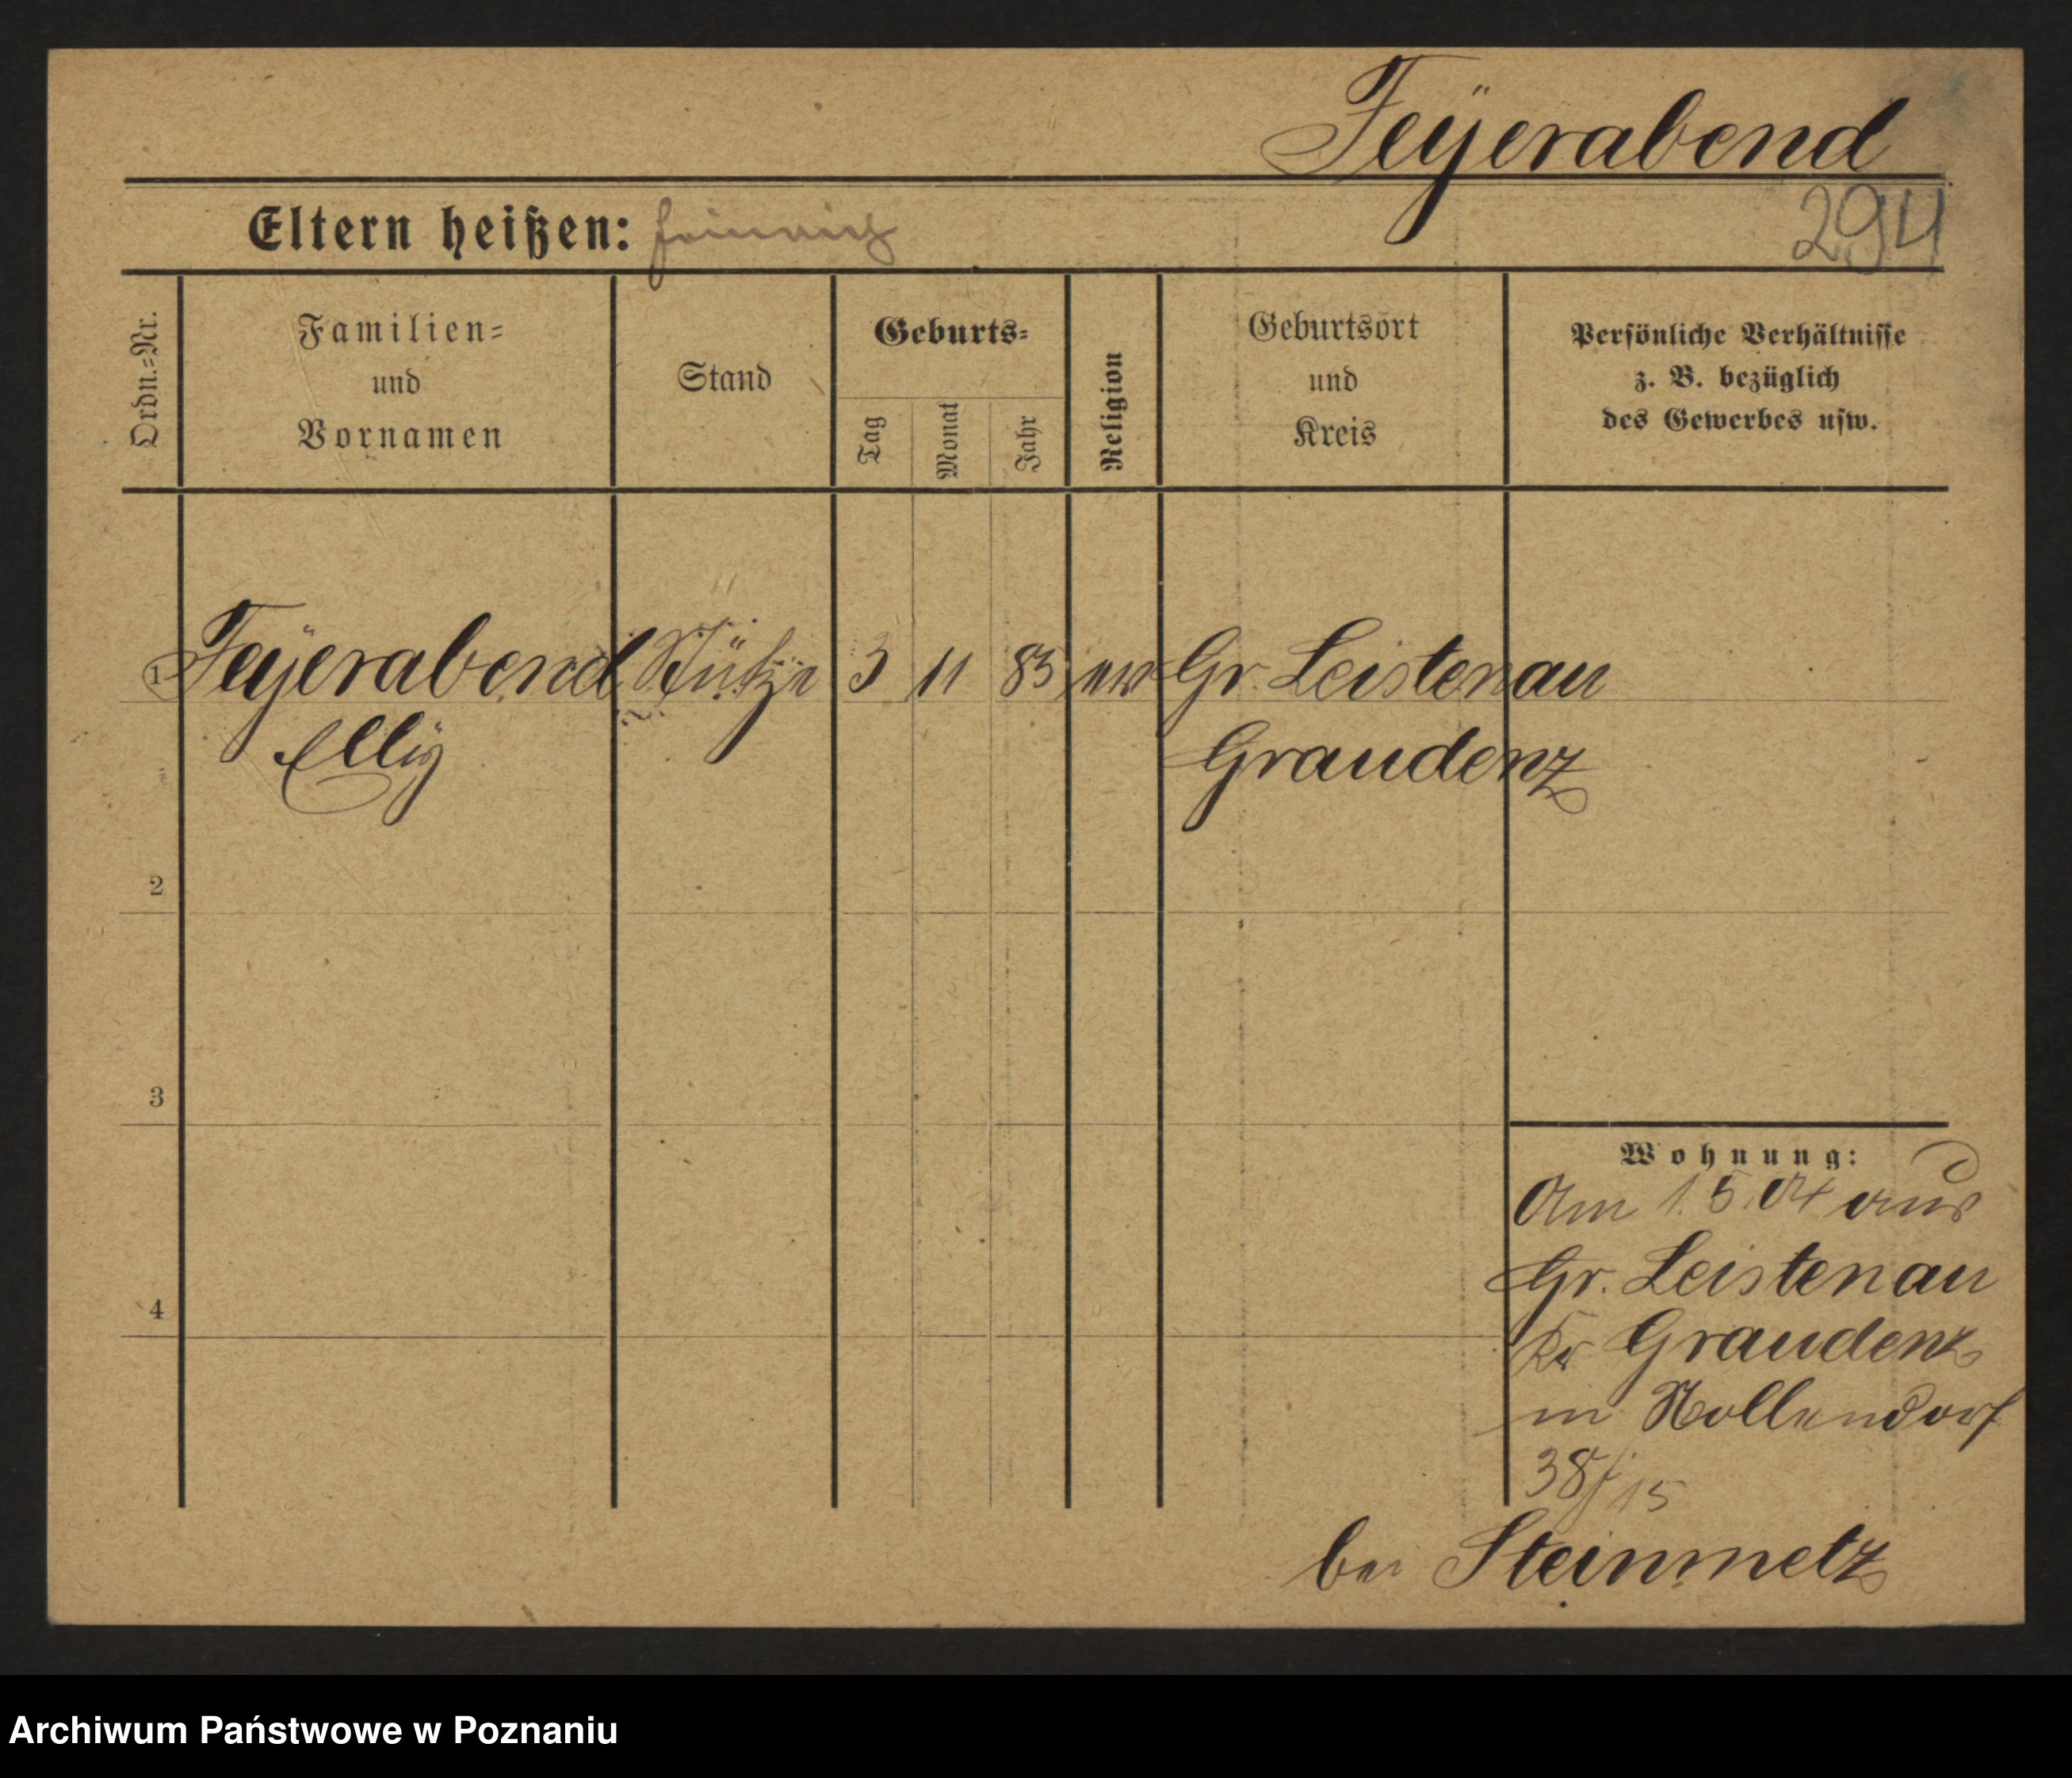 Feÿerabend
Eltern heißen: Heinrich
294
Ordn.=Nr.
Familien=
und
Vornamen
Stand
Geburts=
Tag
Monat
Jahr
Religion
Geburtsort
und
Kreis
Persönliche Verhältnisse
z. B. bezüglich
des Gewerbes usw.
1 Feÿerabend Stütze 3 11 83 ev Gr. Leistenau
Elly Graudenz
2
3
4
Wohnung:
Am 1.5.04 aus
Gr. Leistenau
Kr Graudenz
in Hollendorf
38/15
bei Steinmetz
Archiwum Państwowe w Poznaniu